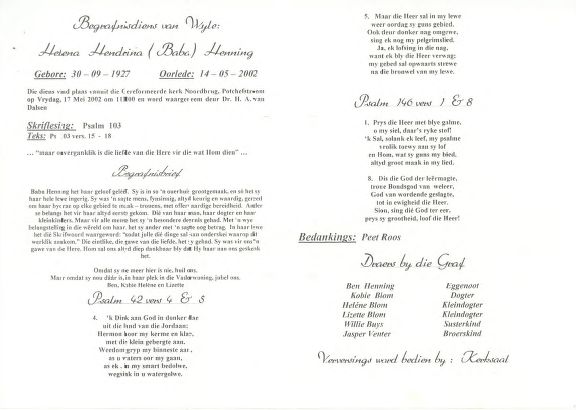 Begrafnisdiens van Wyle:
Helena Hendrina (Baba) Henning
Gebore: 30 – 09 – 1927 Oorlede: 14 – 05 – 2002
Die diens vind plaas vanuit die Gereformeerde kerk Noordbrug, Potchefstroom
op Vrydag, 17 Mei 2002 om 11H00 en word waargeneem deur Dr. H. A. van
Dalsen
Skriflesing: Psalm 103
Teks: Ps 103 vers. 15 - 18
… "maar onverganklik is die liefde van die Here vir die wat Hom dien" …
Begrafnisbrief
Baba Henning het haar geloof geleef. Sy is in so 'n ouerhuis grootgemaak, en só het sy
haar hele lewe ingerig. Sy was 'n sagte mens, fynsinnig, altyd keurig en waardig, gereed
om haar bye rae op elke gebied te maak – trouens, met offervaardige bereidheid. Ander
se belange het vir haar altyd eerste gekom. Dié van haar man, haar dogter en haar
kleinkinders. Maar vir alle mense het sy 'n besondere deernis gehad. Met 'n wye
belangstelling in die wêreld om haar, het sy ander met 'n sagte oog betrag. In haar lewe
het die Skrifwoord waargeword: "sodat julle dié dinge sal kan onderskei waarop dit
werklik aankom." Die eintlike, die gawe van die liefde, het sy gehad. Sy was vir ons 'n
gawe van die Here. Hom sal ons altyd diep dankbaar bly dat Hy haar aan ons geskenk
het.
Omdat sy nie meer hier is nie, huil ons,
Maar omdat sy nou dáár is, in haar plek in die Vaderwoning, jubel ons.
Ben, Kobie Heléne en Lizette
Psalm 42 vers 4 & 5
4. 'k Dink aan God in donker dae
uit die land van die Jordaan;
Hermon hoor my kerme en klae,
met die klein gebergte aan.
Weedom gryp my binneste aar,
as u waters oor my gaan,
as ek, in my smart bedolwe,
wegsink in u watergolwe.
5. Maar die Heer sal in my lewe
weer oordag sy guns gebied.
Ook deur donker nag omgewe,
sing ek nog my pelgrimslied.
Ja, ek lofsing in die nag,
want ek bly die Heer verwag;
my gebed sal opwaarts strewe
na die bronwel van my lewe.
Psalm 146 vers 1 & 8
1. Prys die Heer met blye galme,
o my siel, daar's ryke stof!
'k Sal, solank ek leef, my psalme
vrolik toewy aan sy lof
en Hom, wat sy guns my bied,
altyd groot maak in my lied.
8. Dis die God der leërmagte,
troue Bondsgod van weleer,
God van wordende geslagte,
tot in ewigheid die Heer.
Sion, sing dié God ter eer,
prys sy grootheid, loof die Heer!
Bedankings: Peet Roos
Draers by die Graf
Ben Henning Eggenoot
Kobie Blom Dogter
Heléne Blom Kleindogter
Lizette Blom Kleindogter
Willie Buys Susterkind
Jasper Venter Broerskind
Verversings word bedien by : Kerksaal